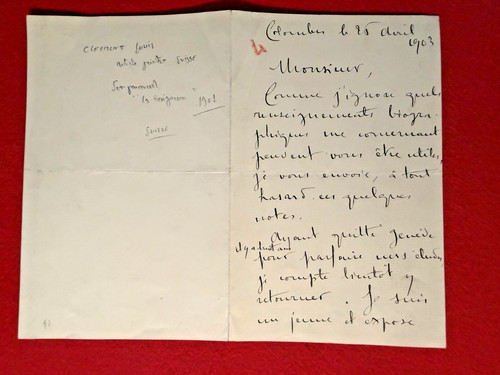 Clement Louis
artiste peintre Suisse
" 1901
Suisse
Colombes le 25 Avril
1903
Monsieur,
Comme j'ignore quels
renseignements biogra-
phiques me concernant
peuvent vous être utiles,
je vous envoie, à tout
hasard, ces quelques
notes.
Ayant quitté Genève
il y a huit ans
pour parfaire mes études
je compte bientôt y
retourner. Je suis
un jeune et expose